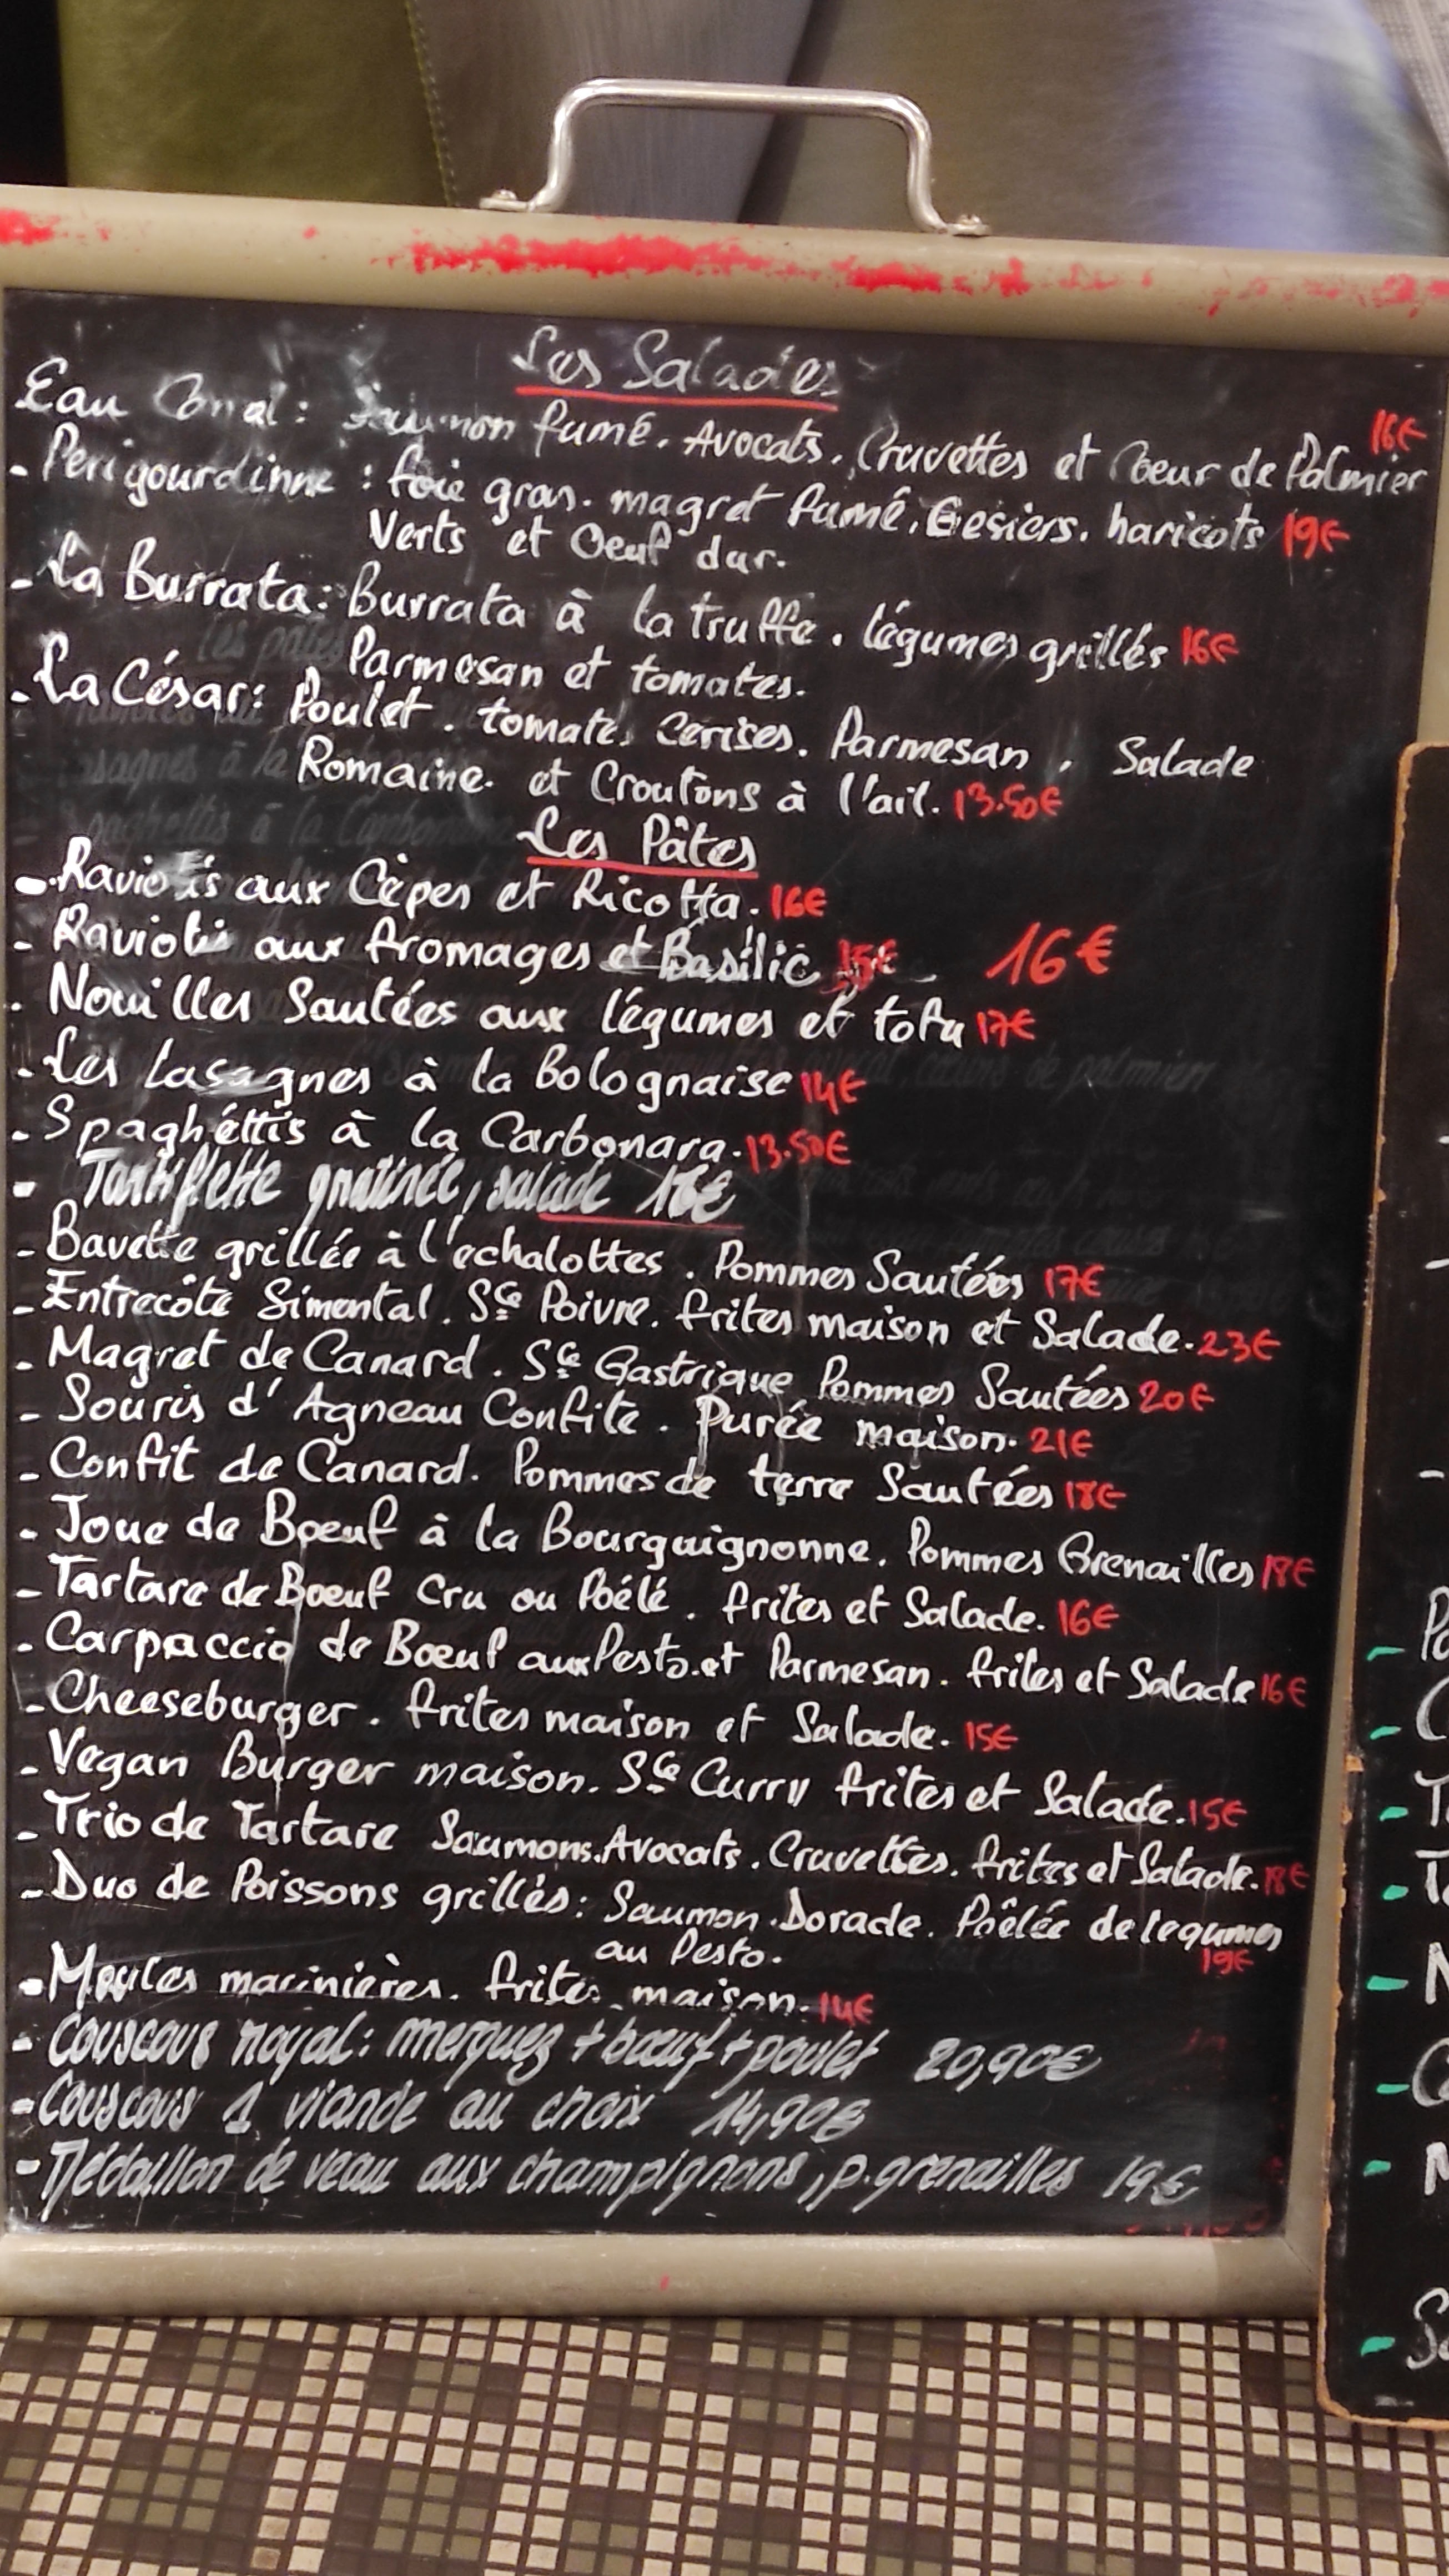 Les Salades
Eau Canal: Saumon fumé. Avocats. Cruvettes et Coeur de Palmier 16€
- Perigourdinne : foie gras. magret fumé. Gesiers. haricots 19€
Verts et Oeuf dur.
- La Burrata: Burrata à la truffe. légumes grillés 16€
Parmesan et tomates.
- La César: Poulet. tomate. Cerises. Parmesan. Salade
Romaine. et Croutons à l'ail. 13.50€
Les Pâtes
- Raviolis aux Cèpes et Ricotta. 16€
- Raviolis aux fromages et Basilic 15€ 16€
. Nouilles Sautées aux légumes et tofu 17€
- Les Lasagnes à la Bolognaise 14€
- Spaghéttis à la Carbonara. 13.50€
- Tartiflette gratinée, salade 16€
- Bavette grillée à l'echalottes. Pommes Sautées 17€
- Entrecôte Simental. Sce Poivre. frites maison et Salade. 23€
- Magret de Canard. Sce Gastrique Pommes Sautées 20€
- Souris d'Agneau Confite. Purée maison. 21€
- Confit de Canard. Pommes de terre Sautées 18€
- Joue de Boeuf à la Bourguignonne. Pommes Grenailles 18€
- Tartare de Boeuf Cru ou Poélé. frites et Salade. 16€
- Carpaccio de Boeuf aux Pesto. et Parmesan. frites et Salade 16€
- Cheeseburger. frites maison et Salade. 15€
- Vegan Burger maison. Sce Curry frites et Salade. 15€
- Trio de Tartare Saumons. Avocats. Cruvettes. frites et Salade. 18€
- Duo de Poissons grillés: Saumon. Dorade. Poêlée de legumes
au Pesto. 19€
- Moules marinières. frites maison. 14€
- Couscous royal: merguez + bœuf + poulet 20,90€
- Couscous 1 viande au choix 14,90€
- Médaillon de veau aux champignons, p. grenailles 19€